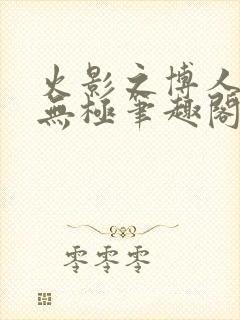 火影之博人
無極筆趣閣
零零零